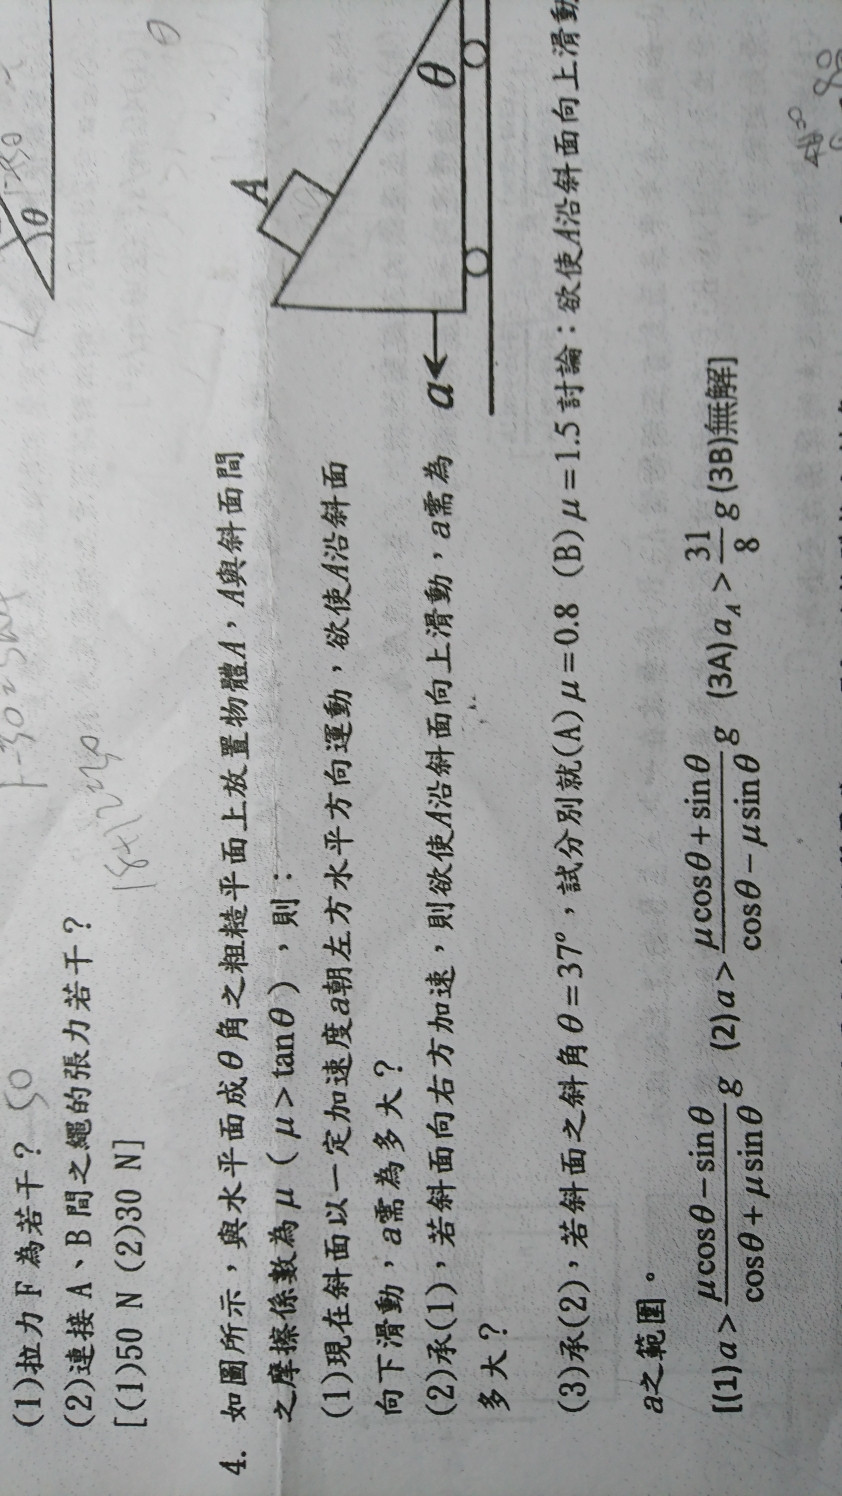 (1)拉力F為若干？50
(2)連接A、B間之繩的張力若干？
[(1)50 N (2)30 N]
4. 如圖所示，與水平面成θ角之粗糙平面上放置物體A，A與斜面間
之摩擦係數為μ（μ＞tanθ），則：
(1)現在斜面以一定加速度a朝左方水平方向運動，欲使A沿斜面
向下滑動，a需為多大？
(2)承(1)，若斜面向右方加速，則欲使A沿斜面向上滑動，a需為
多大？
(3)承(2)，若斜面之斜角θ=37°，試分別就(A)μ=0.8 (B)μ=1.5討論：欲使A沿斜面向上滑動
a之範圍。
[(1)a＞(μcosθ－sinθ)/(cosθ＋μsinθ) g (2)a＞(μcosθ＋sinθ)/(cosθ－μsinθ) g (3A)a_A＞31/8 g (3B)無解]
θ
A
θ
a